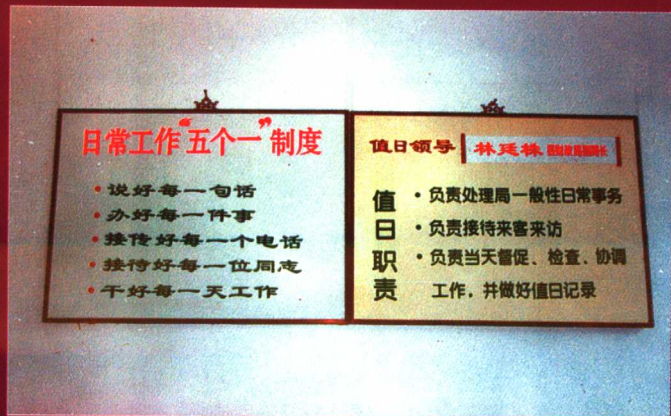 日常工作“五个一”制度
•说好每一句话
•办好每一件事
•接传好每一个电话
•接待好每一位同志
•干好每一天工作
值日领导 林廷株
值日职责
•负责处理局一般性日常事务
•负责接待来客来访
•负责当天督促、检查、协调
工作，并做好值日记录